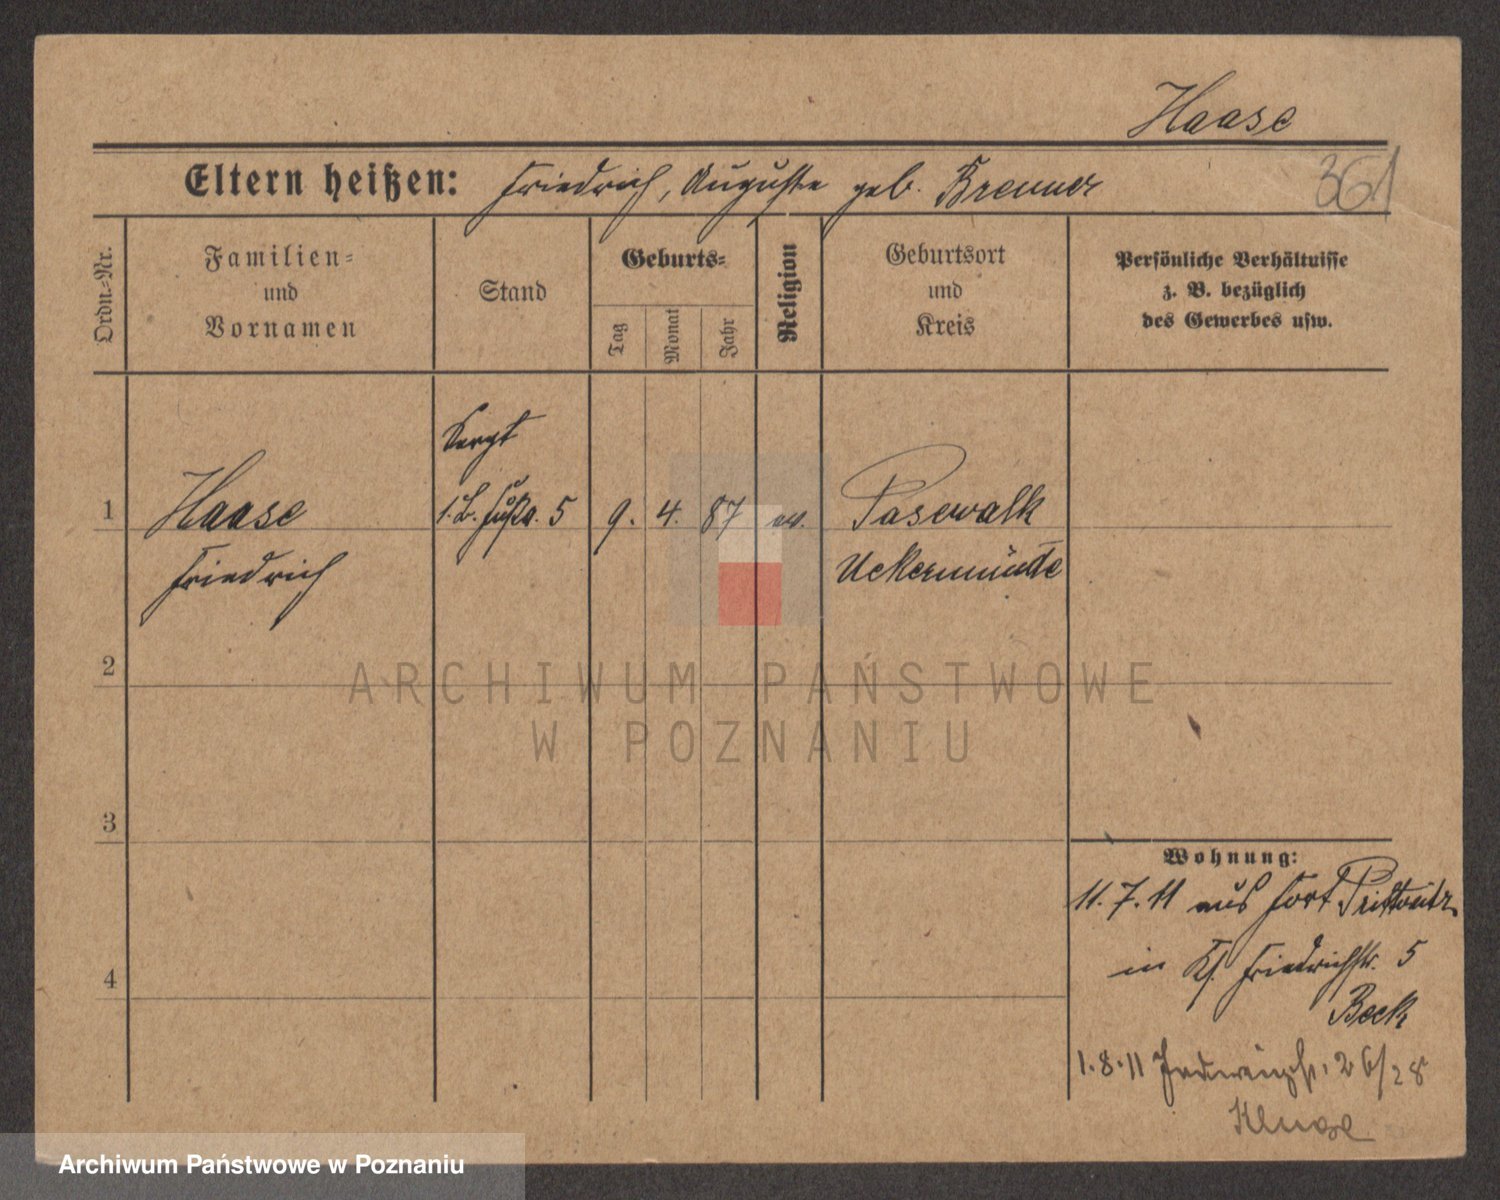 Haase
Eltern heißen: Friedrich, Auguste geb. Brenner
361
Ordn.-Nr.
Familien-
und
Vornamen
Stand
Geburts-
Tag
Monat
Jahr
Religion
Geburtsort
und
Kreis
Persönliche Verhältnisse
z. B. bezüglich
des Gewerbes usw.
Sergt
1. B. Fußa. 5
1
Haase
9. 4. 87 ev.
Pasewalk
Friedrich
Uckermünde
2
ARCHIWUM PAŃSTWOWE
W POZNANIU
3
Wohnung:
11.7.11 aus Fort Prittwitz
in Kl. Friedrichstr. 5
4
Beck
1.8.11 26/28
Kluge
Archiwum Państwowe w Poznaniu